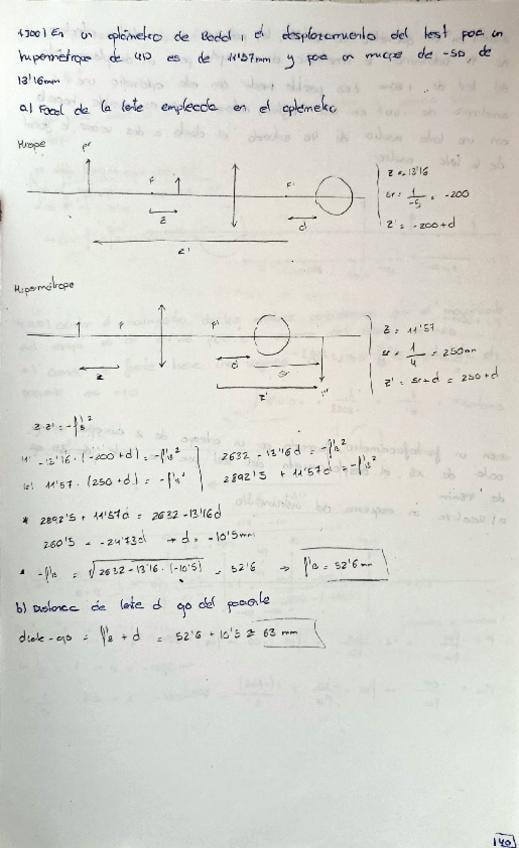 1300) En un optómetro de Badal, el desplazamiento del test para un
hipermétrope de 4D es de 11'57mm y para un miope de -5D, de
13'16mm
a) Focal de la lente empleada en el optómetro
Miope
F
F'
z
d
z'
z = 13'16
sr = 1/-5 = -200
z' = -200+d
Hipermétrope
F
F'
z
d
sr
z'
z = 11'57
sr = 1/4 = 250mm
z' = sr+d = 250+d
z·z' = -f'B²
-13'16 · (-200+d) = -f'B²
11'57 · (250+d) = -f'B²
2632 - 13'16d = -f'B²
2892'5 + 11'57d = -f'B²
* 2892'5 + 11'57d = 2632 - 13'16d
260'5 = -24'73d → d = -10'5mm
* -f'B = √2632 - 13'16 · (-10'5) = 52'6 → f'B = 52'6 mm
b) Distancia de lente al ojo del paciente
dlente-ojo = f'B + d = 52'6 + 10'5 ≈ 63 mm
140